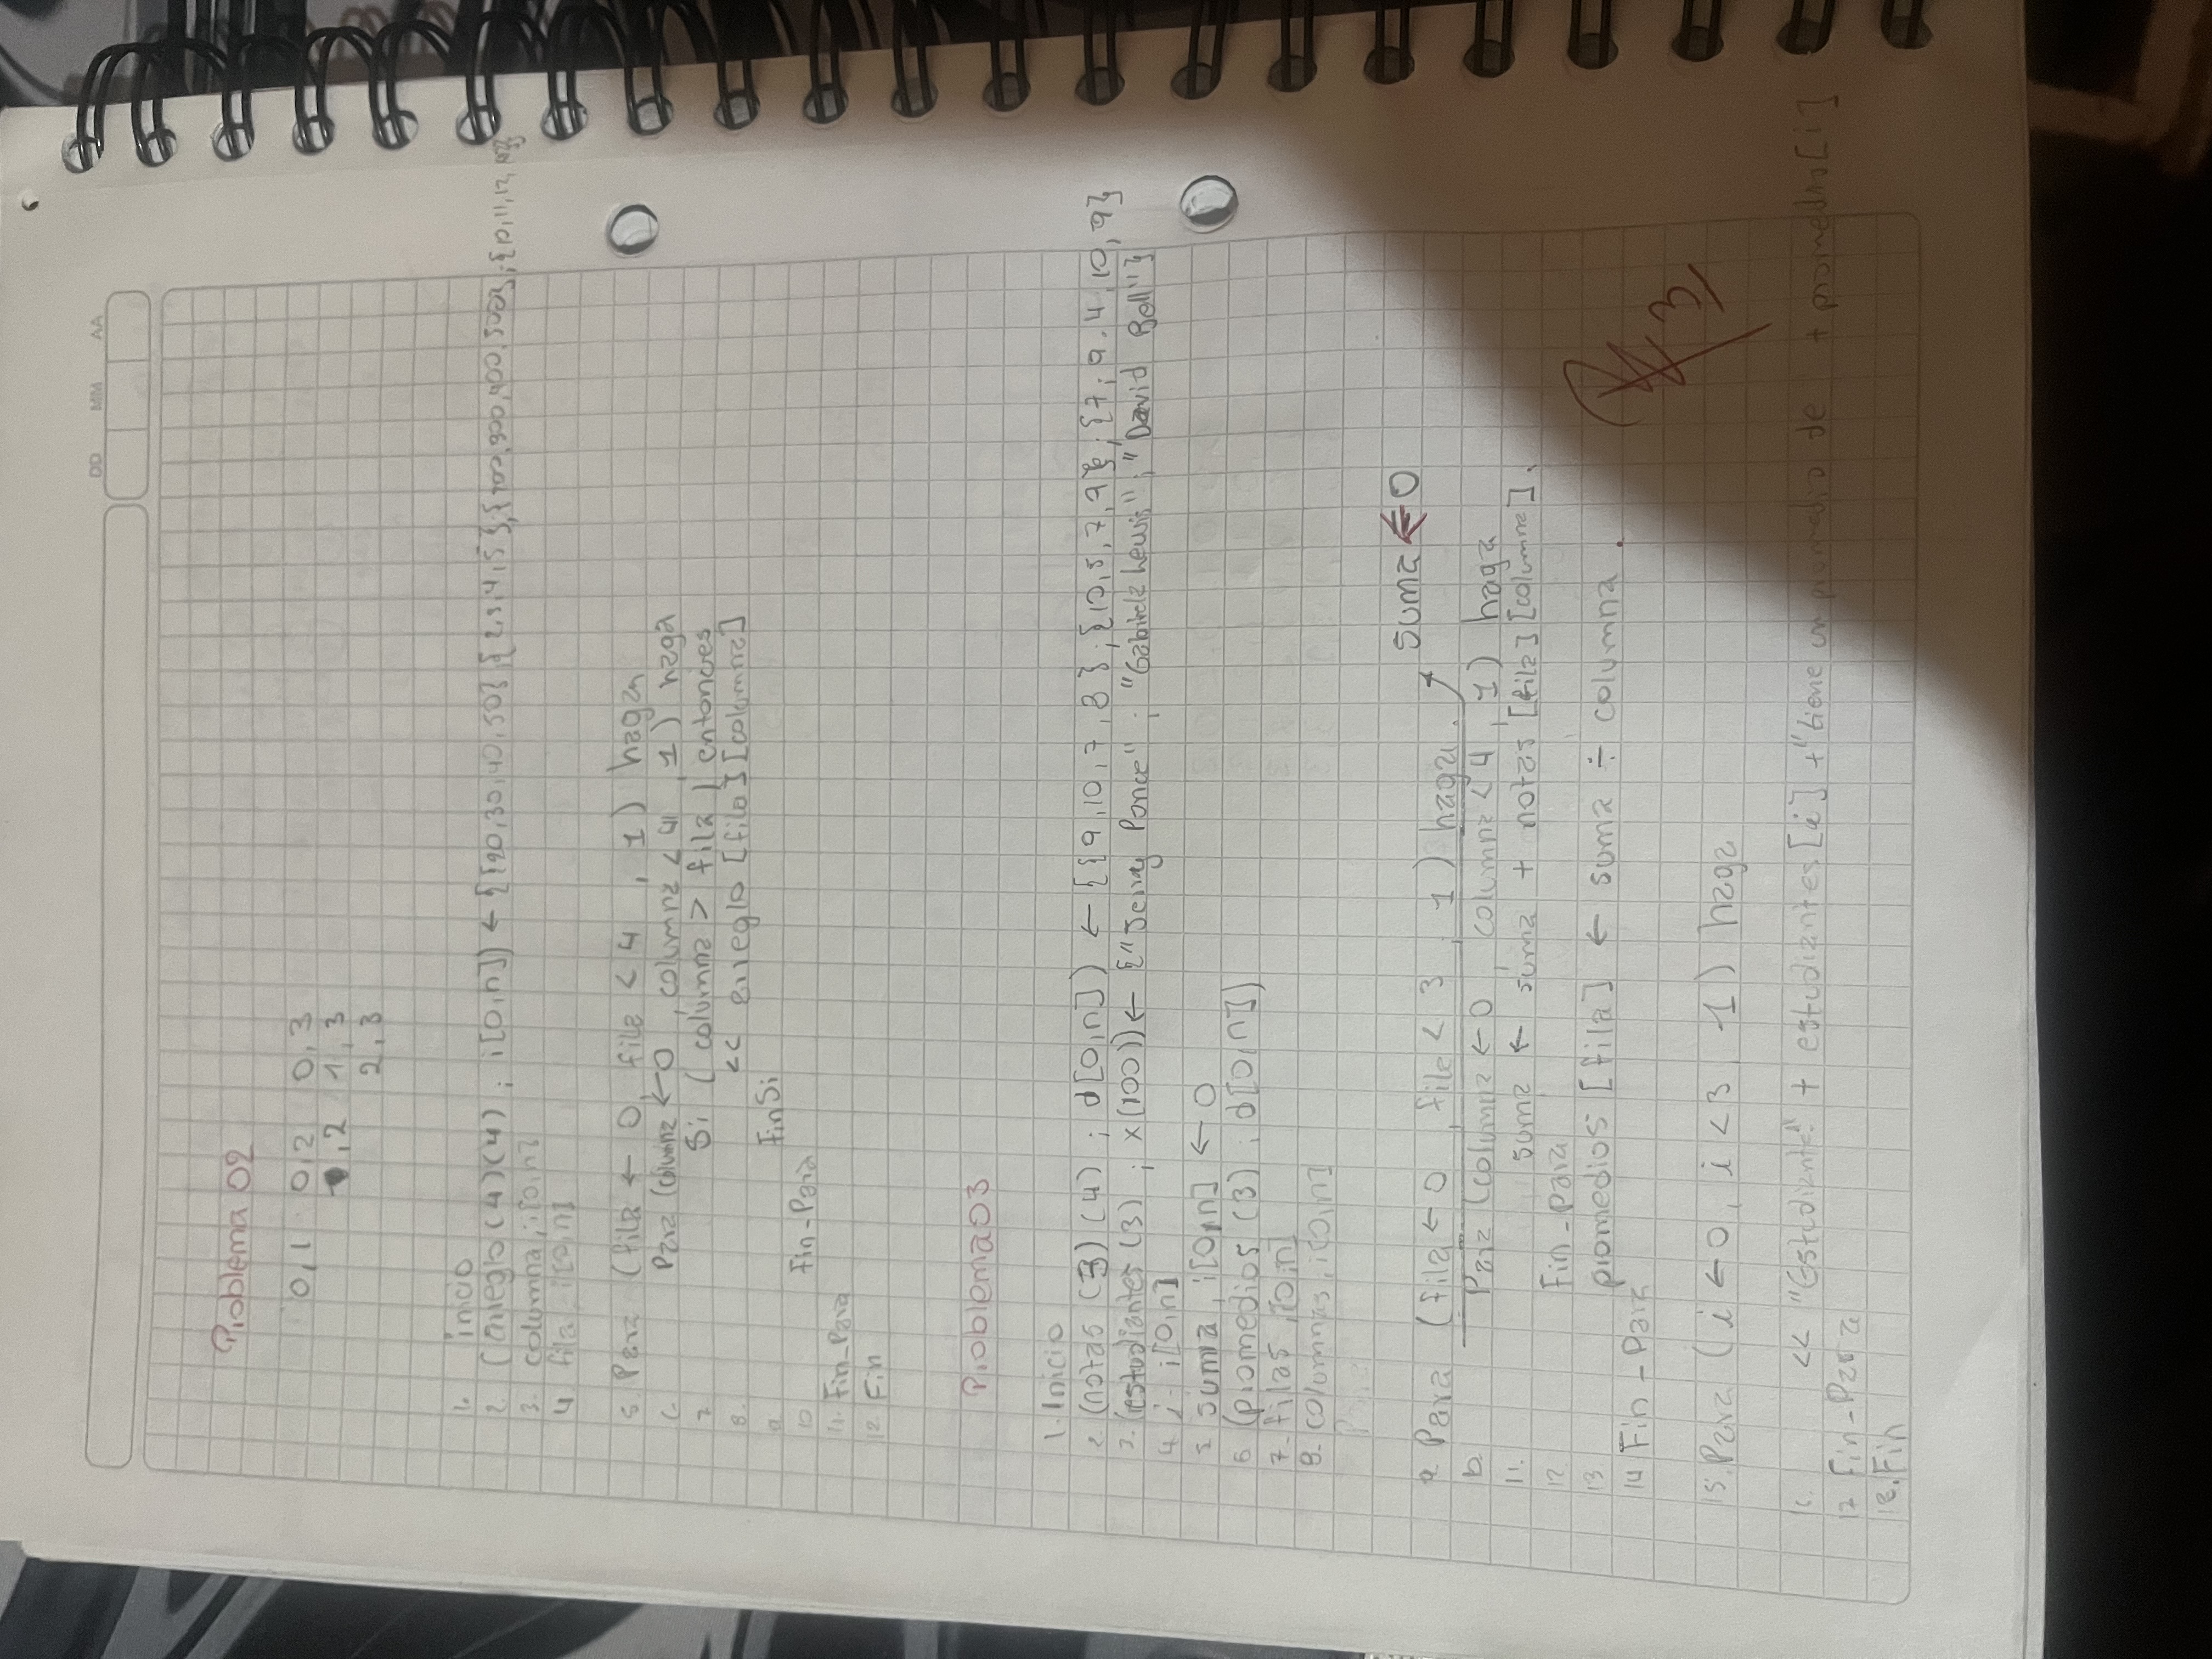 DD MM AA
Problema 02
0,1 0,2 0,3
,2 1,3
2,3
1. inicio
2. (arreglo (4)(4) ; i[0,n]) ← {{20,30,40,50} {2,3,4,5};{ ,300,400,500};{10,11,12,
3. columna, i[0,n]
4. fila, i[0,n]
5. Para (fila ← 0, fila < 4 , 1) hagan
6. Para (columna ← 0 , columna < 4 , 1) haga
7 Si ( columna > fila ) entonces
8. << arreglo [fila] [columna]
9 FinSi
10 Fin-Para
11. Fin_Para
12. Fin
Problema 03
1. Inicio
2. (notas (3) (4) ; d[0,n]) ← {{9,10,7,8};{10,5,7,9};{7,9,4,10,9}
3. (estudiantes (3) ; x(100)) ← {"Jerry Ponce" ; "Lewis" ; "David Bell"}
4. i- i[0,n]
5 suma, i[0,n] ← 0
6 (promedios (3) ; d[0,n])
7. filas, [0,n]
8. columnas, i[0,n]
Para
suma ← 0
9. Para (fila ← 0 , fila < 3 , 1) haga.
10. Para (columna ← 0, columna < 4, 1) haga
11. suma ← suma + notas [fila] [columna].
12 Fin-para
13 promedios [fila] ← suma ÷ columna.
14 Fin-Para
15. Para (i ← 0, i < 3 1) haga
16. << "Estudiante" + estudiantes[i] + "tiene un promedio de + promedio[i]
17 Fin-Para
18. Fin
3